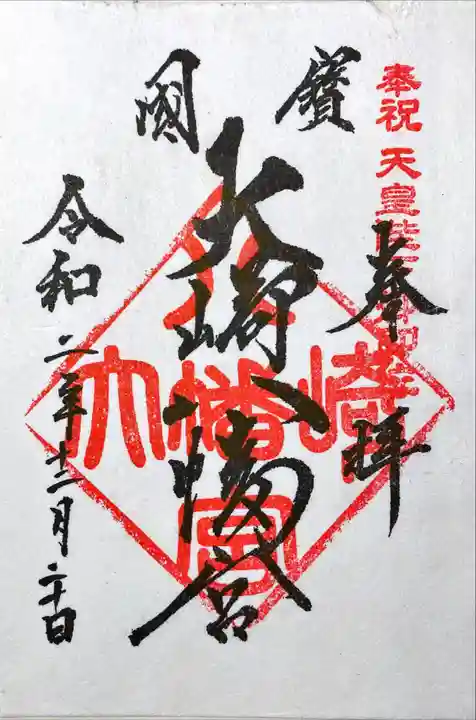 奉祝 天皇陛下御即位
奉拝
國寶
大崎八幡宮
大崎八幡宮
令和二年十二月二十日